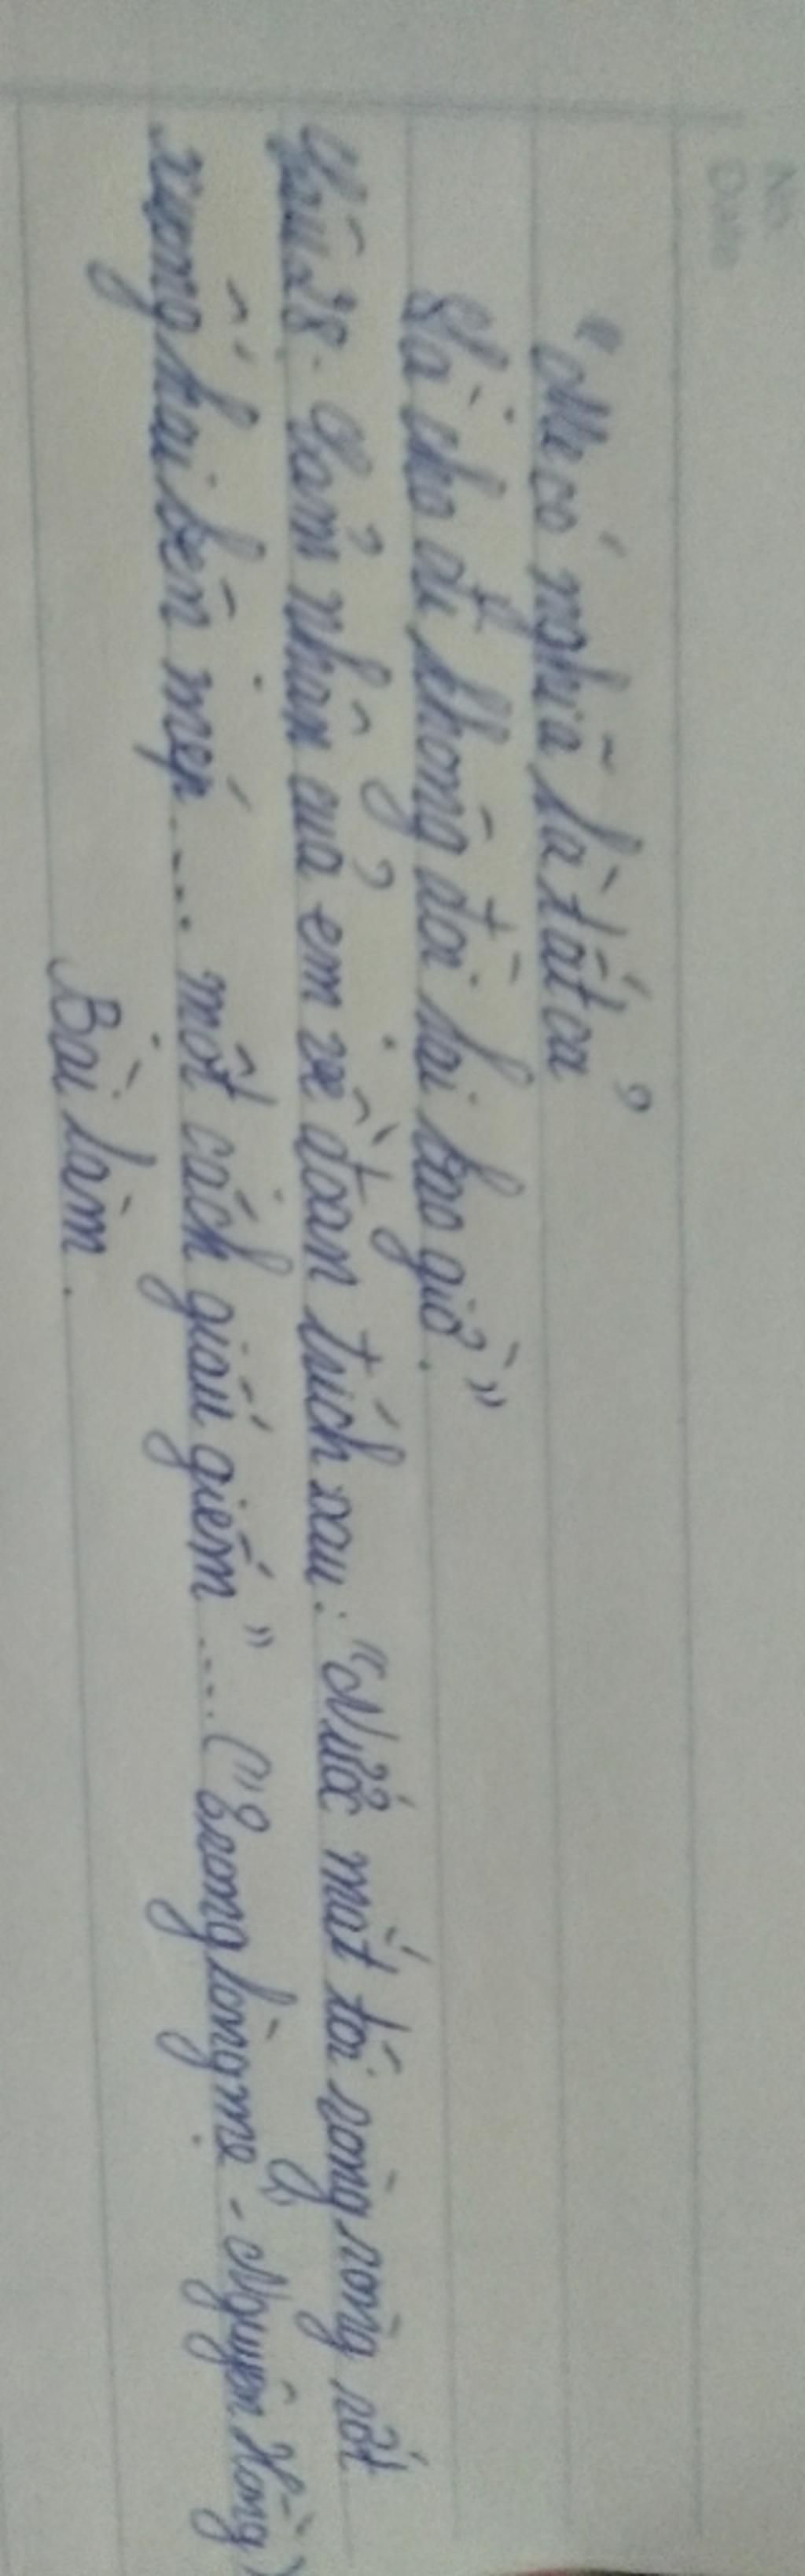 No.
Date
"Mẹ có nghĩa là tất cả
Là cho đi không đòi lại bao giờ."
Câu 28. Cảm nhận của em về đoạn trích sau: "Nước mắt tôi ròng ròng rớt
xuống hai bên mép.... một cách giấu giếm".... ("Trong lòng mẹ" - Nguyên Hồng)
Bài làm.